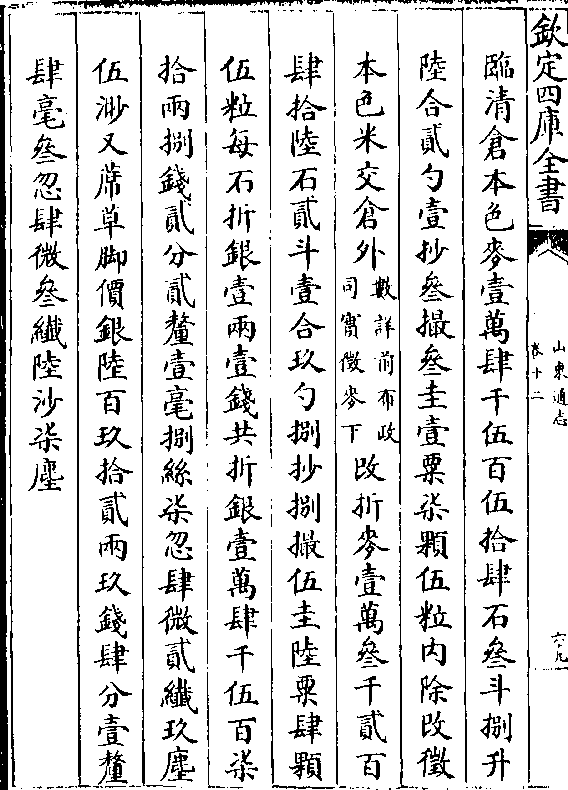 欽定四庫全書
山東通志
卷十二
六九
臨清倉本色麥壹萬肆千伍百伍拾肆石叄斗捌升
陸合貳勺壹抄叄撮叄圭壹粟柒顆伍粒内除改徵
本色米交倉外數詳前布政司實徵麥下改折麥壹萬叄千貳百
肆拾陸石貳斗壹合玖勺捌抄捌撮伍圭陸粟肆顆
伍粒每石折銀壹兩壹錢共折銀壹萬肆千伍百柒
拾兩捌錢貳分貳釐壹毫捌絲柒忽肆微貳纖玖塵
伍渺又蓆草脚價銀陸百玖拾貳兩玖錢肆分壹釐
肆毫叄忽肆微叄纖陸沙柒塵